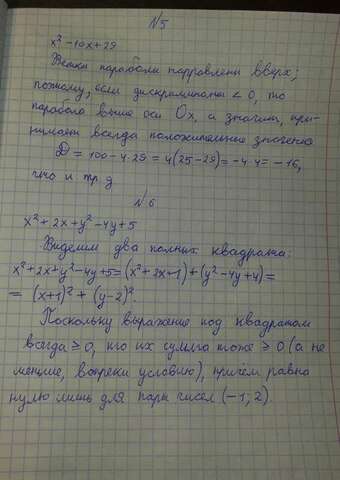 №5
x² - 10x + 29
Ветки параболы направлены вверх;
поэтому, если дискриминант < 0, то
парабола выше оси Ox, а значит, при-
нимает всегда положительные значения
D = 100 - 4·29 = 4(25-29) = -4·4 = -16,
что и тр. д
№6
x² + 2x + y² - 4y + 5
Выделим два полных квадрата:
x²+2x+y²-4y+5 = (x²+2x+1) + (y²-4y+4) =
= (x+1)² + (y-2)².
Поскольку выражение под квадратом
всегда ≥ 0, то их сумма тоже ≥ 0 (а не
меньше, вопреки условию), причем равна
нулю лишь для пары чисел (-1; 2).